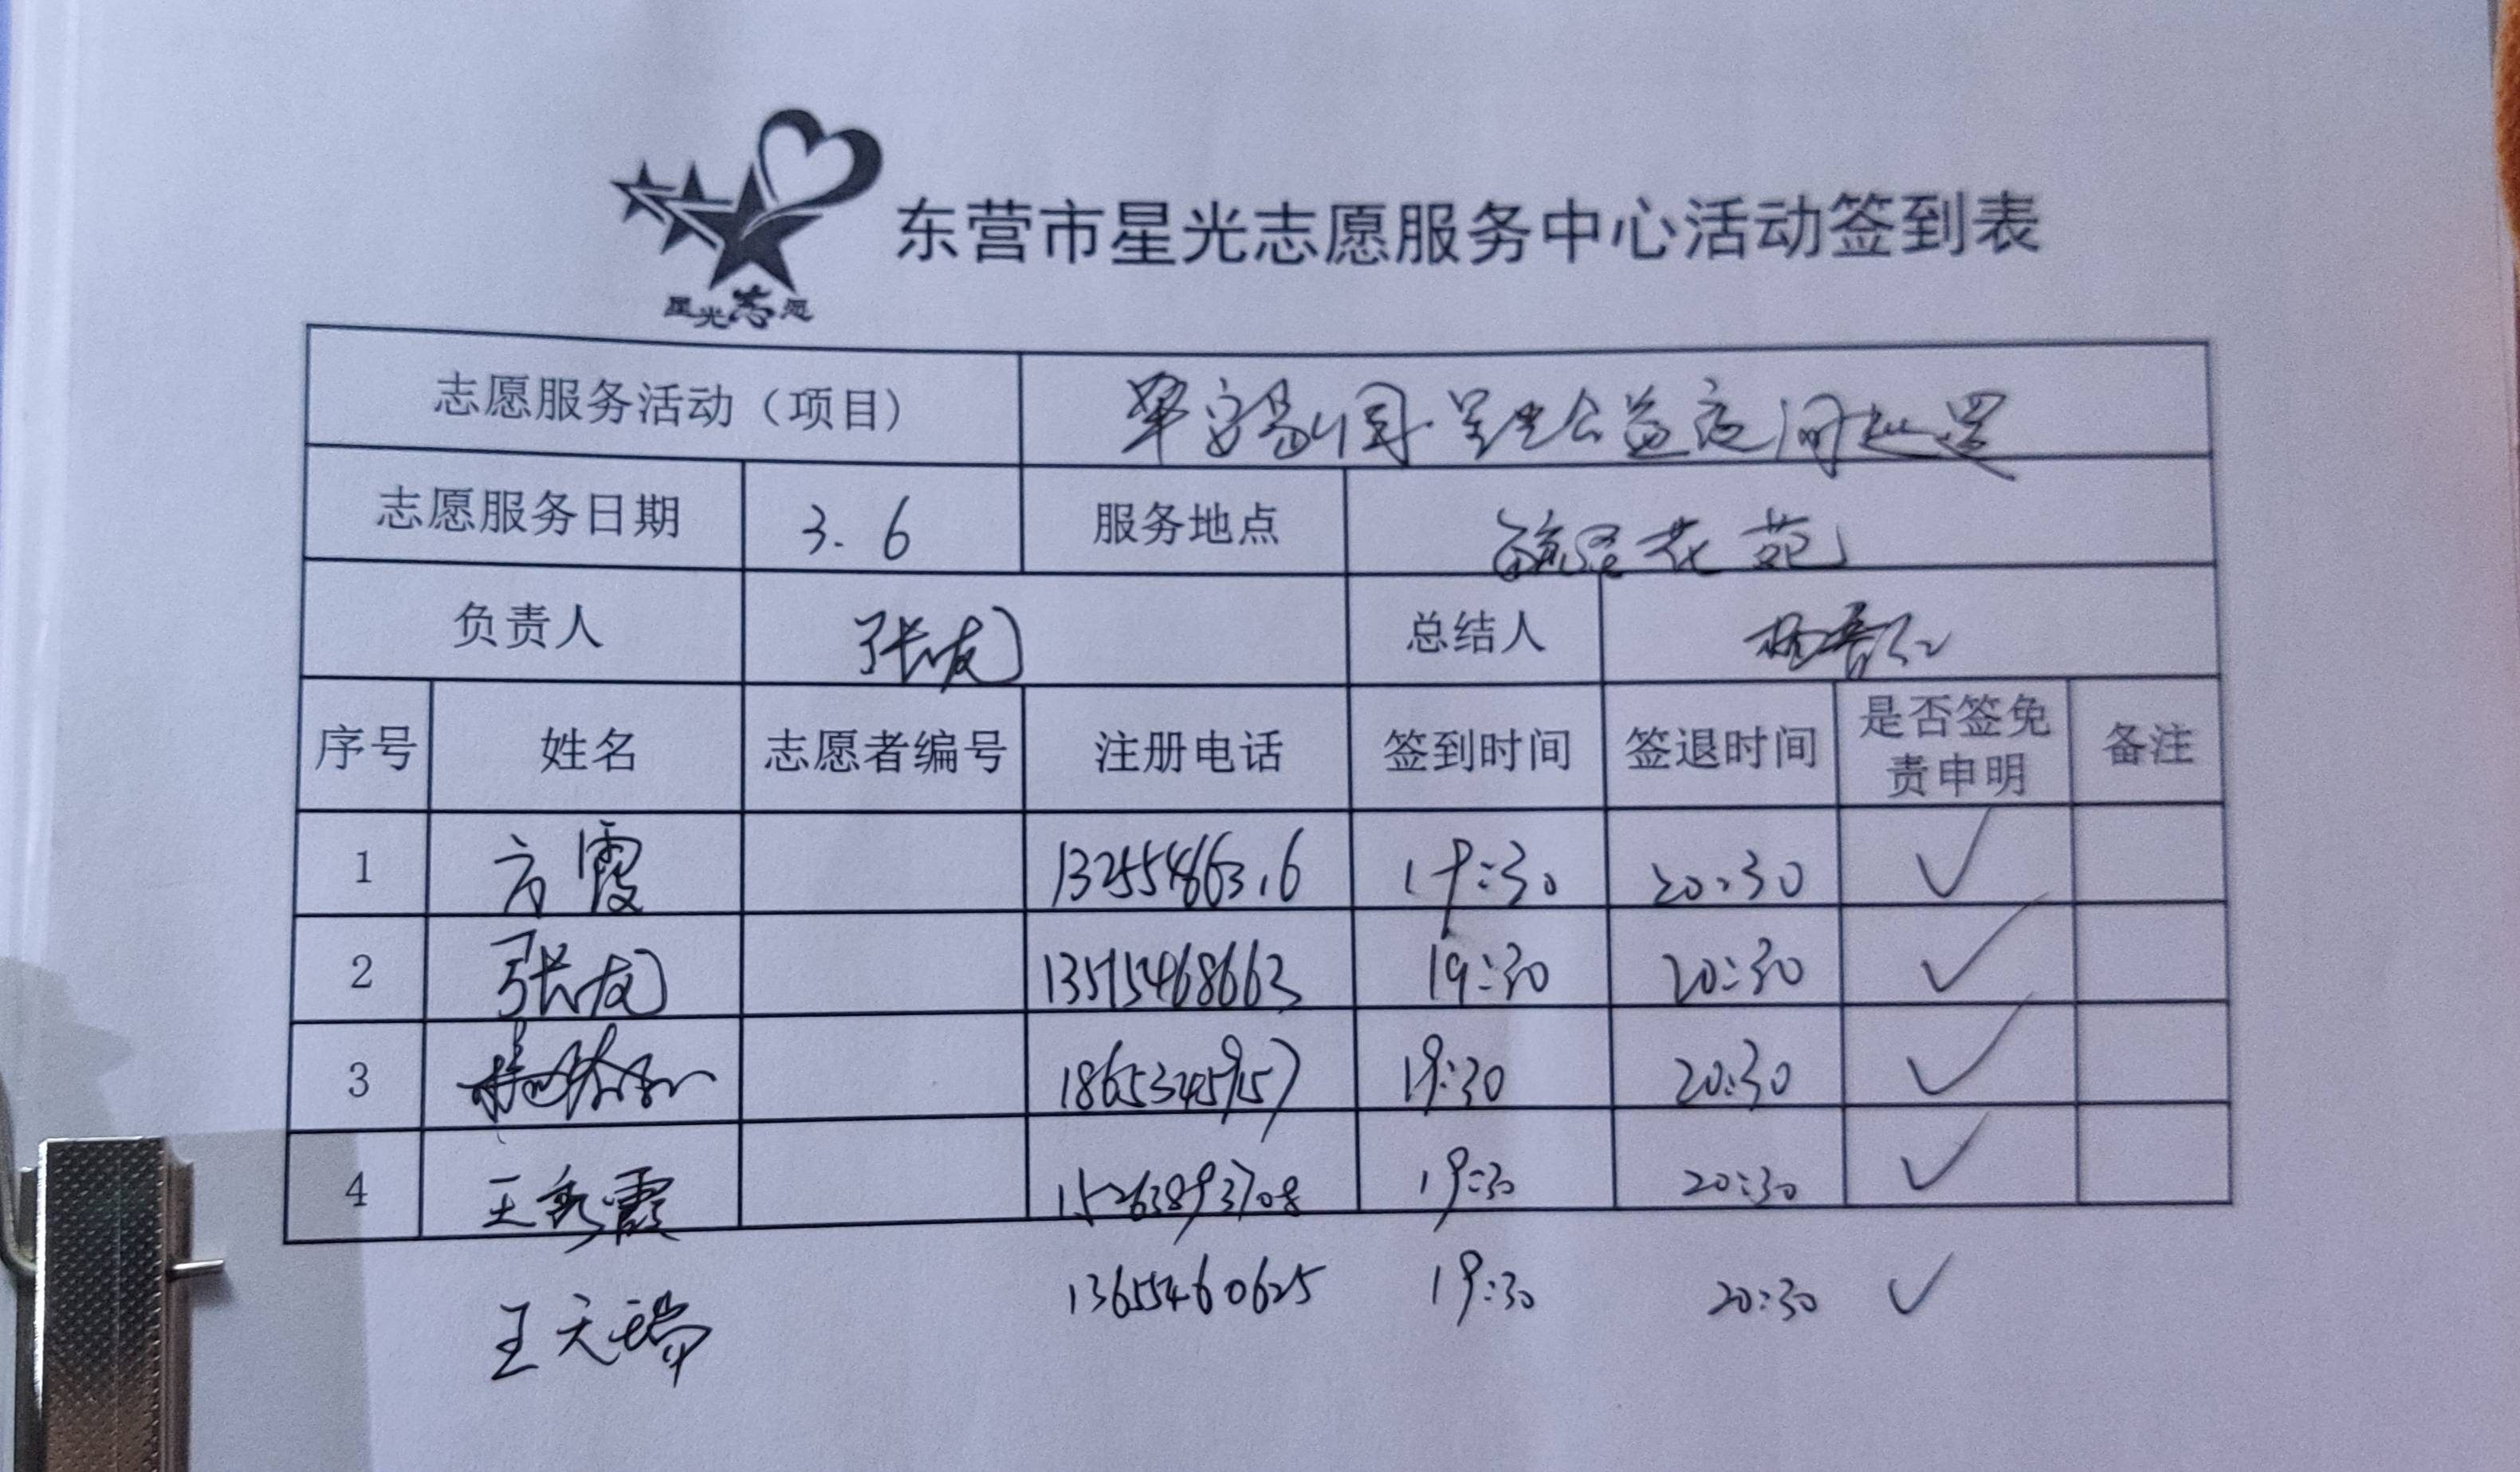 东营市星光志愿服务中心活动签到表
星光志愿
志愿服务活动（项目） 星光公益夜间巡逻
志愿服务日期 3.6 服务地点 花苑
负责人 张友 总结人
序号 姓名 志愿者编号 注册电话 签到时间 签退时间 是否签免责申明 备注
1 方霞 19:30 20:30 ✓
2 张友 13515468663 19:30 20:30 ✓
3 18653245957 19:30 20:30 ✓
4 王秀霞 15263893708 19:30 20:30 ✓
王天瑞 13655460625 19:30 20:30 ✓